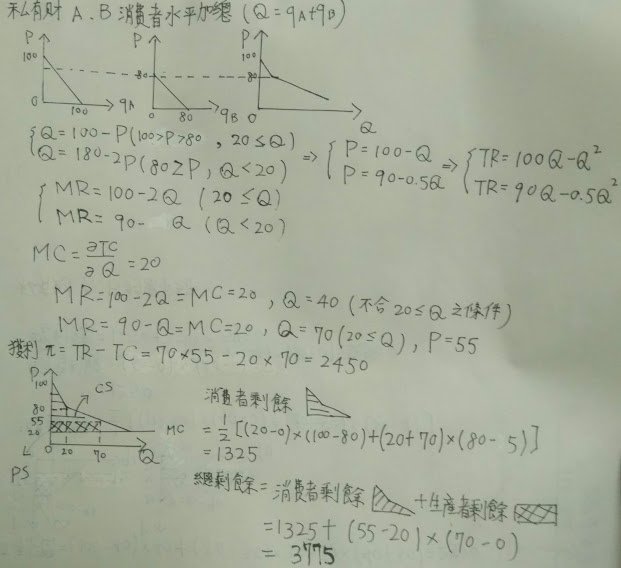 私有財 A、B 消費者水平加總 (Q = qA+qB)
P P P
100 100
80 80
0 100 qA 0 80 qB 0 Q
{Q = 100-P (100>P>80, 20≤Q)
Q = 180-2P (80≥P, Q<20) ⇒ {P = 100-Q
P = 90-0.5Q ⇒ {TR = 100Q-Q²
TR = 90Q-0.5Q²
{MR = 100-2Q (20≤Q)
MR = 90- Q (Q<20)
MC = ∂TC/∂Q = 20
MR = 100-2Q = MC = 20, Q = 40 (不合 20≤Q 之條件)
MR = 90-Q = MC = 20, Q = 70 (20≤Q), P = 55
獲利 π = TR-TC = 70×55-20×70 = 2450
P
100
80
55
20
0 20 70 Q
CS
MC
PS
消費者剩餘
= 1/2[(20-0)×(100-80)+(20+70)×(80- 5)]
= 1325
總剩餘 = 消費者剩餘 + 生產者剩餘
= 1325 + (55-20)×(70-0)
= 3775